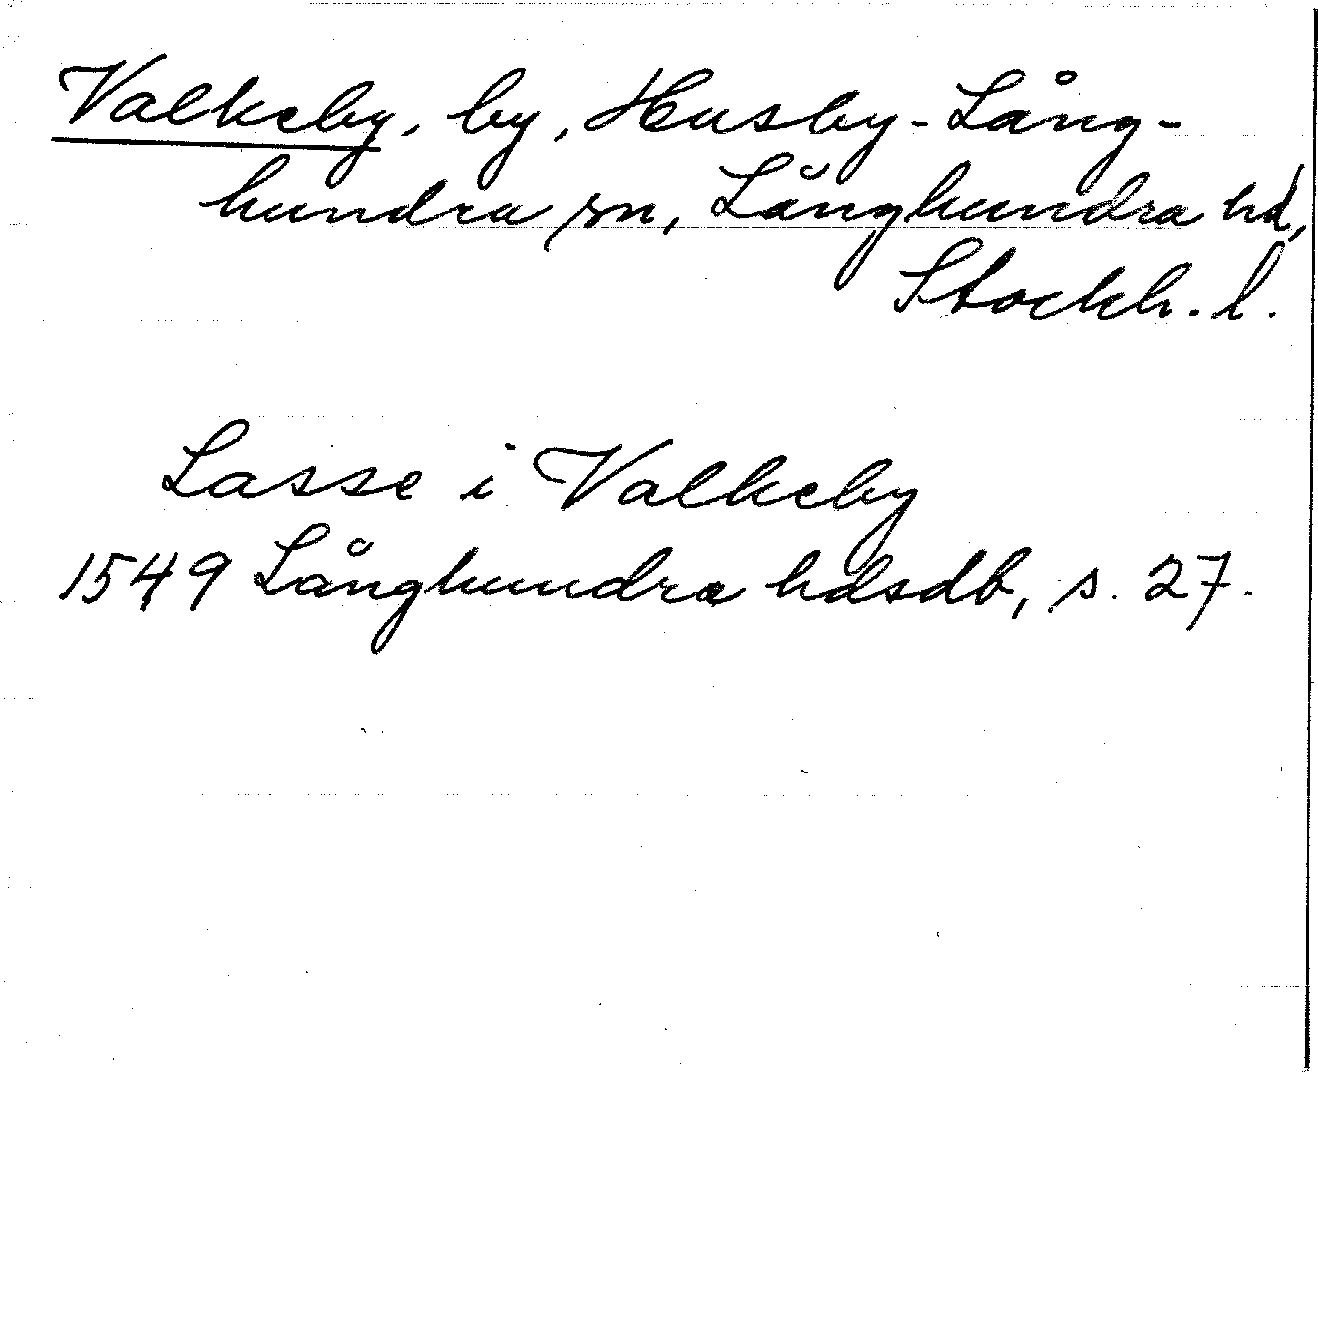 Valkeby, by, Husby-Lång-
hundra sn, Långhundra hd,
Stockh. l.
Lasse i Valkeby
1549 Långhundra hdsdb, s. 27.